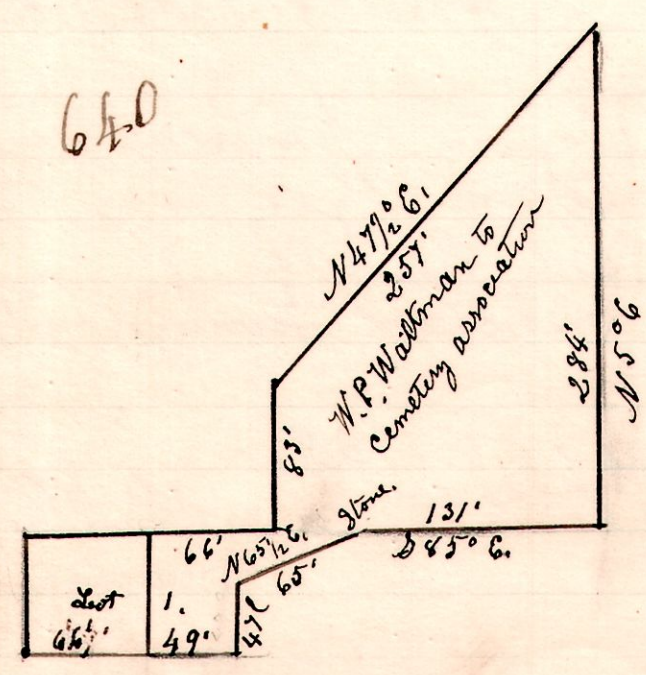 640
N 47 1/2° E.
257'
W. P. Waltman to
cemetery association
284'
N 5° E
83'
Stone.
131'
S 85° E.
66'
N 65 1/2 E.
65'
Lot 1.
49'